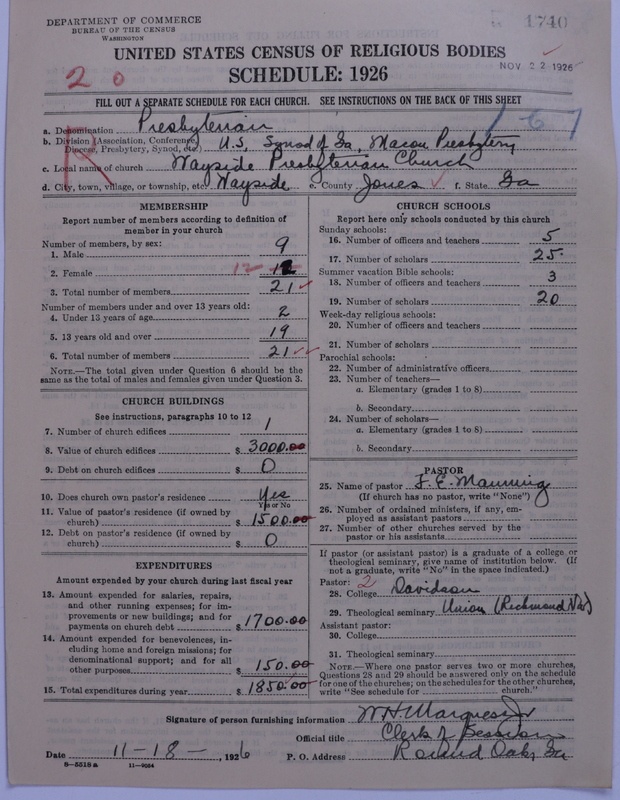 DEPARTMENT OF COMMERCE
BUREAU OF THE CENSUS
WASHINGTON
1740
UNITED STATES CENSUS OF RELIGIOUS BODIES
SCHEDULE: 1926
NOV 22 1926
2 0
FILL OUT A SEPARATE SCHEDULE FOR EACH CHURCH. SEE INSTRUCTIONS ON THE BACK OF THIS SHEET
a. Denomination Presbyterian
b. Division (Association, Conference, Diocese, Presbytery, Synod, etc.) U.S. Synod of Ga, Macon Presbytery
c. Local name of church Wayside Presbyterian Church
d. City, town, village, or township, etc. Wayside e. County Jones f. State Ga
MEMBERSHIP
Report number of members according to definition of
member in your church
Number of members, by sex:
1. Male 9
2. Female 12 12
3. Total number of members 21
Number of members under and over 13 years old:
4. Under 13 years of age 2
5. 13 years old and over 19
6. Total number of members 21
NOTE.—The total given under Question 6 should be
same as the total of males and females given under Question 3.
CHURCH BUILDINGS
See instructions, paragraphs 10 to 12
7. Number of church edifices 1
8. Value of church edifices $ 3000.00
9. Debt on church edifices $ 0
10. Does church own pastor's residence Yes
Yes or No
11. Value of pastor's residence (if owned by
church) $ 1500.00
12. Debt on pastor's residence (if owned by
church) $ 0
EXPENDITURES
Amount expended by your church during last fiscal year
13. Amount expended for salaries, repairs,
and other running expenses; for im-
provements or new buildings; and for
payments on church debt $ 1700.00
14. Amount expended for benevolences, in-
cluding home and foreign missions; for
denominational support; and for all
other purposes $ 150.00
15. Total expenditures during year $ 1850.00
CHURCH SCHOOLS
Report here only schools conducted by this church
Sunday schools:
16. Number of officers and teachers 5
17. Number of scholars 25
Summer vacation Bible schools:
18. Number of officers and teachers 3
19. Number of scholars 20
Week-day religious schools:
20. Number of officers and teachers
21. Number of scholars
Parochial schools:
22. Number of administrative officers
23. Number of teachers—
a. Elementary (grades 1 to 8)
b. Secondary
24. Number of scholars—
a. Elementary (grades 1 to 8)
b. Secondary
PASTOR
25. Name of pastor F. E. Manning
(If church has no pastor, write "None")
26. Number of ordained ministers, if any, em-
ployed as assistant pastors
27. Number of other churches served by the
pastor or his assistants
If pastor (or assistant pastor) is a graduate of a college or
theological seminary, give name of institution below. (If
not a graduate, write "No" in the space indicated.)
Pastor: 2
28. College Davidson
29. Theological seminary Union (Richmond Va)
Assistant pastor:
30. College
31. Theological seminary
NOTE.—Where one pastor serves two or more churches,
Questions 28 and 29 should be answered only on the schedule
for one of the churches; on the schedules for the other churches,
write "See schedule for church."
Signature of person furnishing information W H Marquess Jr
Official title Clerk of Session
Date 11-18-, 1926 P. O. Address Round Oak, Ga
8-5518 a 11-9034